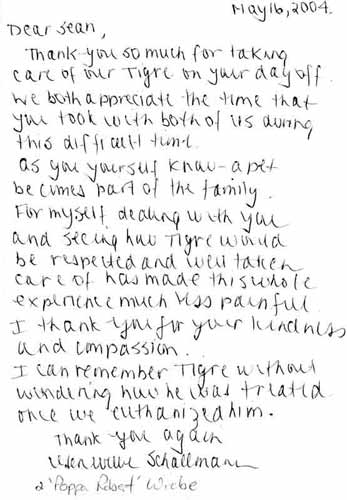 May 16, 2004.
Dear Sean,
Thank you so much for taking
care of our Tigre on your day off.
We both appreciate the time that
you took with both of us during
this difficult time.
As you yourself know - a pet
becomes part of the family.
For myself dealing with you
and seeing how Tigre would
be respected and well taken
care of has made this whole
experience much less painful
I thank you for your kindness
and compassion.
I can remember Tigre without
wondering how he was treated
once we euthanized him.
Thank you again
Schallmann
& 'Poppa Robert' Wiebe